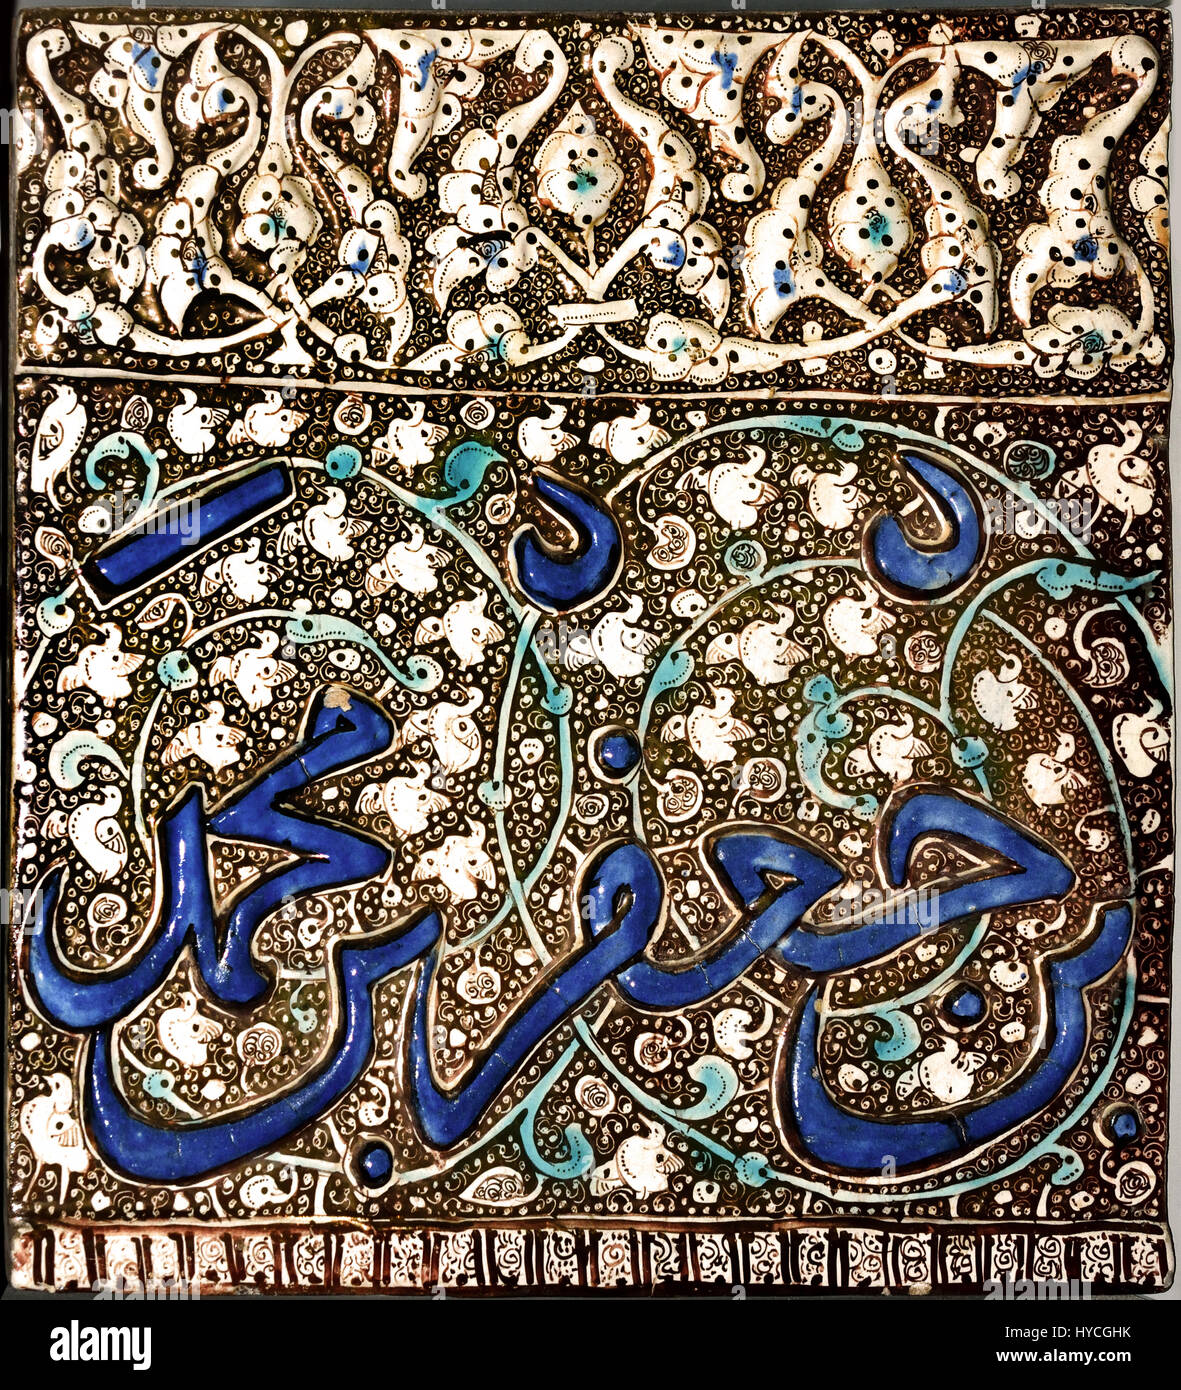 بن جعفر بن محمد
alamy
Image ID: HYCGHK
www.alamy.com